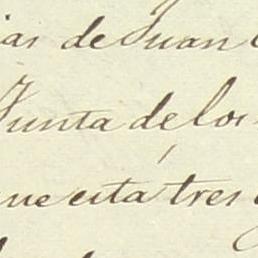 ias de Juan
Junta de los
ne esta tres